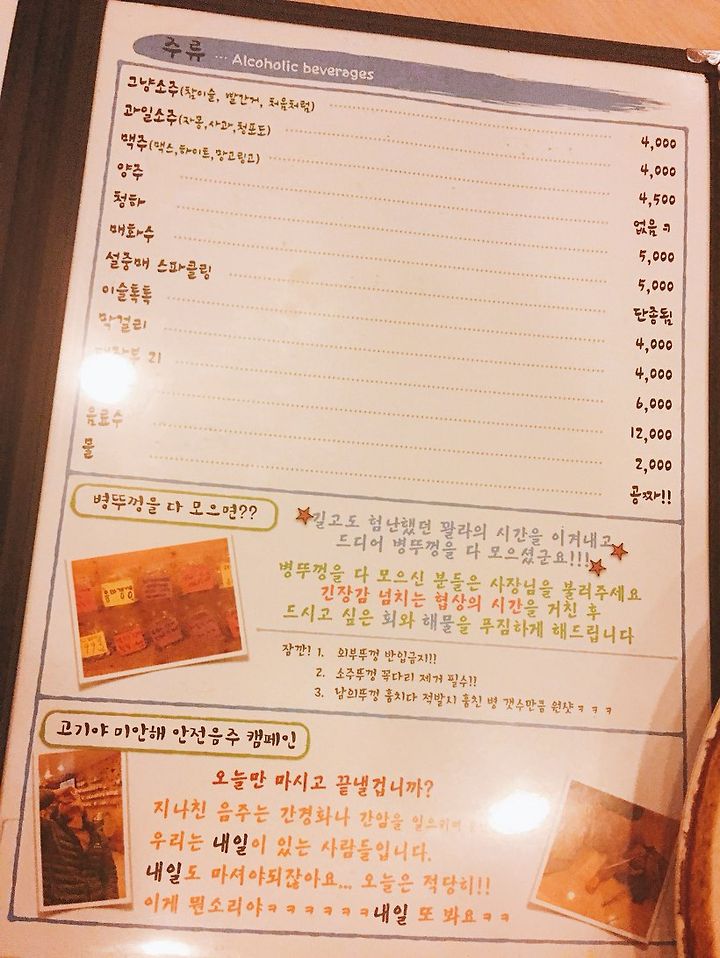 주류 ... Alcoholic beverages
그냥소주(참이슬, 빨간거, 처음처럼) 4,000
과일소주(자몽,사과,청포도) 4,000
맥주(맥스,하이트,망고링고) 4,500
양주 없음ㅋ
청하 5,000
매화수 5,000
설중매 스파클링 단종됨
이슬톡톡 4,000
막걸리 4,000
21 6,000
12,000
음료수 2,000
물 공짜!!
병뚜껑을 다 모으면??
길고도 험난했던 꽐라의 시간을 이겨내고
드디어 병뚜껑을 다 모으셨군요!!!
병뚜껑을 다 모으신 분들은 사장님을 불러주세요
긴장감 넘치는 협상의 시간을 거친 후
드시고 싶은 회와 해물을 푸짐하게 해드립니다
잠깐! 1. 외부뚜껑 반입금지!!
2. 소주뚜껑 꼭다리 제거 필수!!
3. 남의뚜껑 훔치다 적발시 훔친 병 갯수만큼 원샷ㅋㅋㅋ
고기야 미안해 안전음주 캠페인
오늘만 마시고 끝낼겁니까?
지나친 음주는 간경화나 간암을 일으키며
우리는 내일이 있는 사람들입니다.
내일도 마셔야되잖아요... 오늘은 적당히!!
이게 뭔소리야ㅋㅋㅋㅋㅋㅋ내일 또 봐요ㅋㅋ